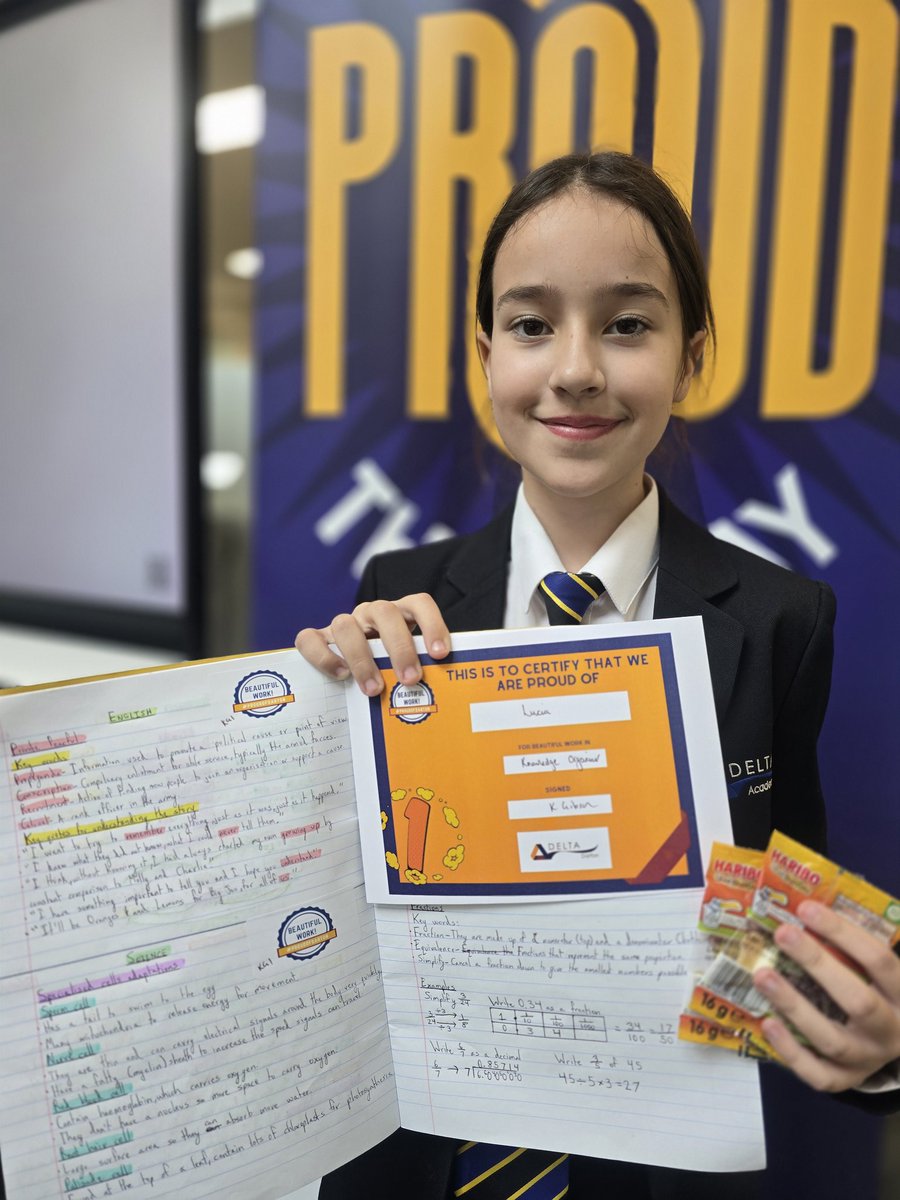 PROUD
THE
WAY
THIS IS TO CERTIFY THAT WE
ARE PROUD OF
BEAUTIFUL
WORK!
Lucia
FOR BEAUTIFUL WORK IN
Knowledge Organiser
SIGNED
K Gibson
DELTA
1
DELTA
Academ
HARIBO
HARIBO
16 g
16 g
BEAUTIFUL
WORK!
ENGLISH
Private Peaceful
Key words
Propaganda- Information used to promote a political cause or point of view
Conscription- Compulsory enlistment for state service, typically the armed forces.
Recruitment- Action of finding new people to join an organisation or support a cause
Colonel- A rank officer in the army
Key quotes to understanding the story
"I want to try to remember everything, just as it was, just as it happened."
"I have what they did not know, what I could never tell them."
"I think, without knowing it, I had always charted my own growing up by
constant comparison to Molly and Charlie."
"I have something important to tell you and I hope you understand"
"It'll be Oranges and Lemons for Big Joe, for all of us"
BEAUTIFUL
WORK!
SCIENCE
Specialised cells adaptations
Sperm cell
Has a tail to swim to the egg
Many mitochondria to release energy for movement.
Nerve cell
They are thin and can carry electrical signals around the body very quickly
Have a fatty (myelin) sheath to increase the speed signals can travel
Red blood cell
Contain haemoglobin, which carries oxygen.
They don't have a nucleus so more space to carry oxygen.
Root hair cell
Large surface area so they can absorb more water.
Palisade cell
Found at the top of a leaf, contain lots of chloroplasts for photosynthesis
Fractions
Key words:
Fraction- They are made up of a numerator (top) and a denominator
Equivalence- Fractions that represent the same proportion
Simplify- Cancel a fraction down to give the smallest numbers possible
Examples
Simplify 3/24
3/24 ÷3 ÷3 → 1/8
Write 0.34 as a fraction
1 1/10 1/100 1/1000
0 3 4
= 34/100 = 17/50
Write 6/7 as a decimal
6/7 → 7
0.85714
Write 3/5 of 45
45÷5×3=27